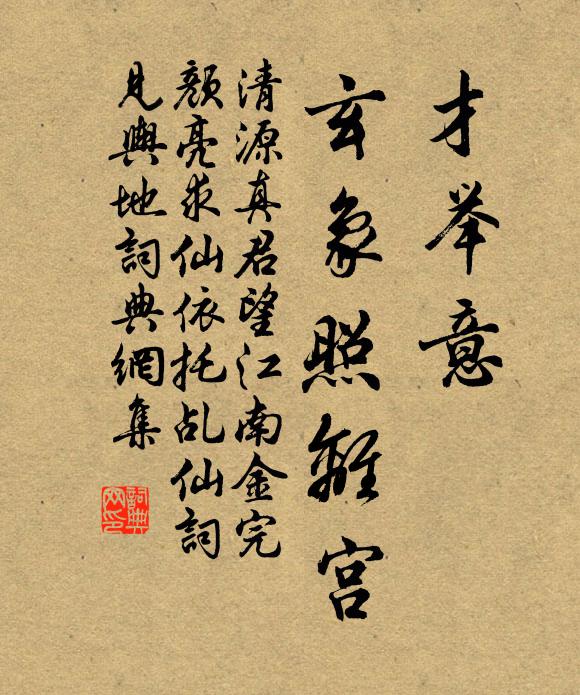 才举意
玄象照離宫
清源真君望江南金完
顏亮求仙依托乩仙詞
見輿地詞典網集
詞典
网印